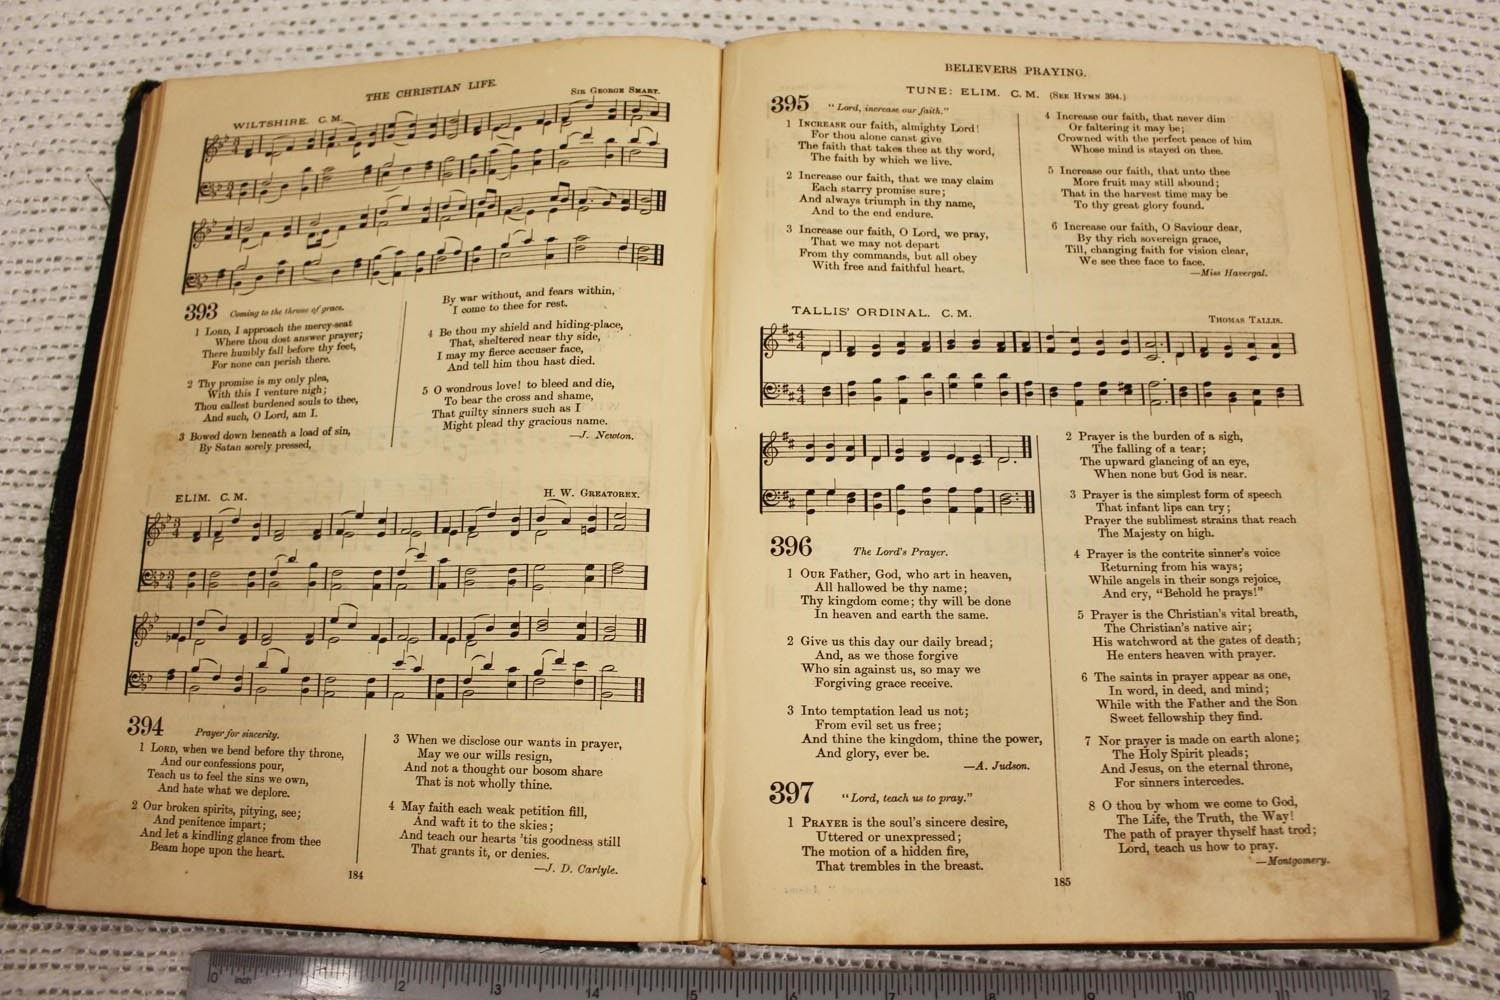 THE CHRISTIAN LIFE.
WILTSHIRE. C. M.
SIR GEORGE SMART.
393 Coming to the throne of grace.
1 LORD, I approach the mercy-seat
Where thou dost answer prayer;
There humbly fall before thy feet,
For none can perish there.
2 Thy promise is my only plea,
With this I venture nigh;
Thou callest burdened souls to thee,
And such, O Lord, am I.
3 Bowed down beneath a load of sin,
By Satan sorely pressed,
By war without, and fears within,
I come to thee for rest.
4 Be thou my shield and hiding-place,
That, sheltered near thy side,
I may my fierce accuser face,
And tell him thou hast died.
5 O wondrous love! to bleed and die,
To bear the cross and shame,
That guilty sinners such as I
Might plead thy gracious name.
—J. Newton.
ELIM. C. M.
H. W. GREATOREX.
394 Prayer for sincerity.
1 LORD, when we bend before thy throne,
And our confessions pour,
Teach us to feel the sins we own,
And hate what we deplore.
2 Our broken spirits, pitying, see;
And penitence impart;
And let a kindling glance from thee
Beam hope upon the heart.
3 When we disclose our wants in prayer,
May we our wills resign,
And not a thought our bosom share
That is not wholly thine.
4 May faith each weak petition fill,
And waft it to the skies;
And teach our hearts 'tis goodness still
That grants it, or denies.
—J. D. Carlyle.
184
BELIEVERS PRAYING.
TUNE: ELIM. C. M. (SEE HYMN 394.)
395 "Lord, increase our faith."
1 INCREASE our faith, almighty Lord!
For thou alone canst give
The faith that takes thee at thy word,
The faith by which we live.
2 Increase our faith, that we may claim
Each starry promise sure;
And always triumph in thy name,
And to the end endure.
3 Increase our faith, O Lord, we pray,
That we may not depart
From thy commands, but all obey
With free and faithful heart.
4 Increase our faith, that never dim
Or faltering it may be;
Crowned with the perfect peace of him
Whose mind is stayed on thee.
5 Increase our faith, that unto thee
More fruit may still abound;
That in the harvest time may be
To thy great glory found.
6 Increase our faith, O Saviour dear,
By thy rich sovereign grace,
Till, changing faith for vision clear,
We see thee face to face.
—Miss Havergal.
TALLIS' ORDINAL. C. M.
THOMAS TALLIS.
396 The Lord's Prayer.
1 OUR Father, God, who art in heaven,
All hallowed be thy name;
Thy kingdom come; thy will be done
In heaven and earth the same.
2 Give us this day our daily bread;
And, as we those forgive
Who sin against us, so may we
Forgiving grace receive.
3 Into temptation lead us not;
From evil set us free;
And thine the kingdom, thine the power,
And glory, ever be.
—A. Judson.
397 "Lord, teach us to pray."
1 PRAYER is the soul's sincere desire,
Uttered or unexpressed;
The motion of a hidden fire,
That trembles in the breast.
2 Prayer is the burden of a sigh,
The falling of a tear;
The upward glancing of an eye,
When none but God is near.
3 Prayer is the simplest form of speech
That infant lips can try;
Prayer the sublimest strains that reach
The Majesty on high.
4 Prayer is the contrite sinner's voice
Returning from his ways;
While angels in their songs rejoice,
And cry, "Behold he prays!"
5 Prayer is the Christian's vital breath,
The Christian's native air;
His watchword at the gates of death;
He enters heaven with prayer.
6 The saints in prayer appear as one,
In word, in deed, and mind;
While with the Father and the Son
Sweet fellowship they find.
7 Nor prayer is made on earth alone;
The Holy Spirit pleads;
And Jesus, on the eternal throne,
For sinners intercedes.
8 O thou by whom we come to God,
The Life, the Truth, the Way!
The path of prayer thyself hast trod;
Lord, teach us how to pray.
—Montgomery.
185
0 inch 2 3 14 5 6 7 8 9 10 11 12